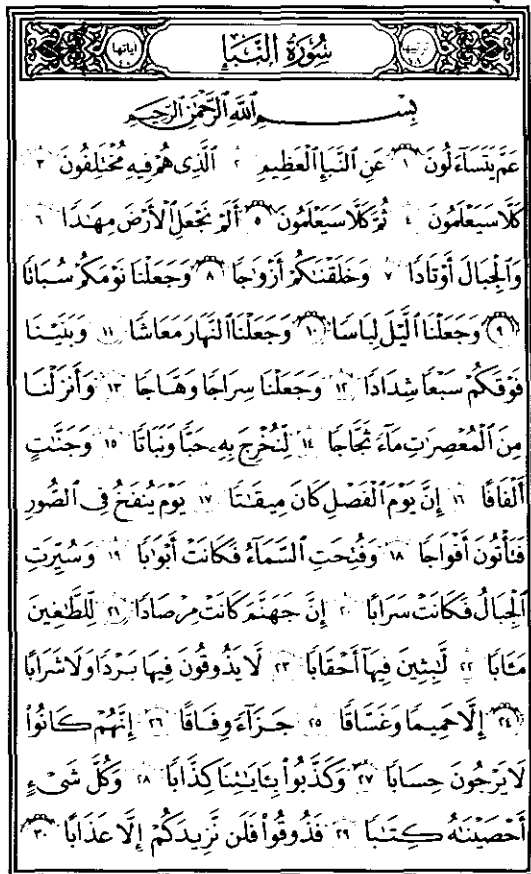 ترتيبها ٧٨ سُورَةُ النَّبَإِ آياتها ٤٠
بِسْمِ اللَّهِ الرَّحْمَٰنِ الرَّحِيمِ
عَمَّ يَتَسَآءَلُونَ ١ عَنِ النَّبَإِ الْعَظِيمِ ٢ الَّذِى هُمْ فِيهِ مُخْتَلِفُونَ ٣
كَلَّا سَيَعْلَمُونَ ٤ ثُمَّ كَلَّا سَيَعْلَمُونَ ٥ أَلَمْ نَجْعَلِ الْأَرْضَ مِهَٰدًا ٦
وَالْجِبَالَ أَوْتَادًا ٧ وَخَلَقْنَٰكُمْ أَزْوَٰجًا ٨ وَجَعَلْنَا نَوْمَكُمْ سُبَاتًا
٩ وَجَعَلْنَا الَّيْلَ لِبَاسًا ١٠ وَجَعَلْنَا النَّهَارَ مَعَاشًا ١١ وَبَنَيْنَا
فَوْقَكُمْ سَبْعًا شِدَادًا ١٢ وَجَعَلْنَا سِرَاجًا وَهَّاجًا ١٣ وَأَنزَلْنَا
مِنَ الْمُعْصِرَٰتِ مَآءً ثَجَّاجًا ١٤ لِّنُخْرِجَ بِهِۦ حَبًّا وَنَبَاتًا ١٥ وَجَنَّٰتٍ
أَلْفَافًا ١٦ إِنَّ يَوْمَ الْفَصْلِ كَانَ مِيقَٰتًا ١٧ يَوْمَ يُنفَخُ فِى الصُّورِ
فَتَأْتُونَ أَفْوَاجًا ١٨ وَفُتِحَتِ السَّمَآءُ فَكَانَتْ أَبْوَٰبًا ١٩ وَسُيِّرَتِ
الْجِبَالُ فَكَانَتْ سَرَابًا ٢٠ إِنَّ جَهَنَّمَ كَانَتْ مِرْصَادًا ٢١ لِّلطَّٰغِينَ
مَـَٔابًا ٢٢ لَّٰبِثِينَ فِيهَآ أَحْقَابًا ٢٣ لَّا يَذُوقُونَ فِيهَا بَرْدًا وَلَا شَرَابًا
٢٤ إِلَّا حَمِيمًا وَغَسَّاقًا ٢٥ جَزَآءً وِفَاقًا ٢٦ إِنَّهُمْ كَانُوا۟
لَا يَرْجُونَ حِسَابًا ٢٧ وَكَذَّبُوا۟ بِـَٔايَٰتِنَا كِذَّابًا ٢٨ وَكُلَّ شَىْءٍ
أَحْصَيْنَٰهُ كِتَٰبًا ٢٩ فَذُوقُوا۟ فَلَن نَّزِيدَكُمْ إِلَّا عَذَابًا ٣٠